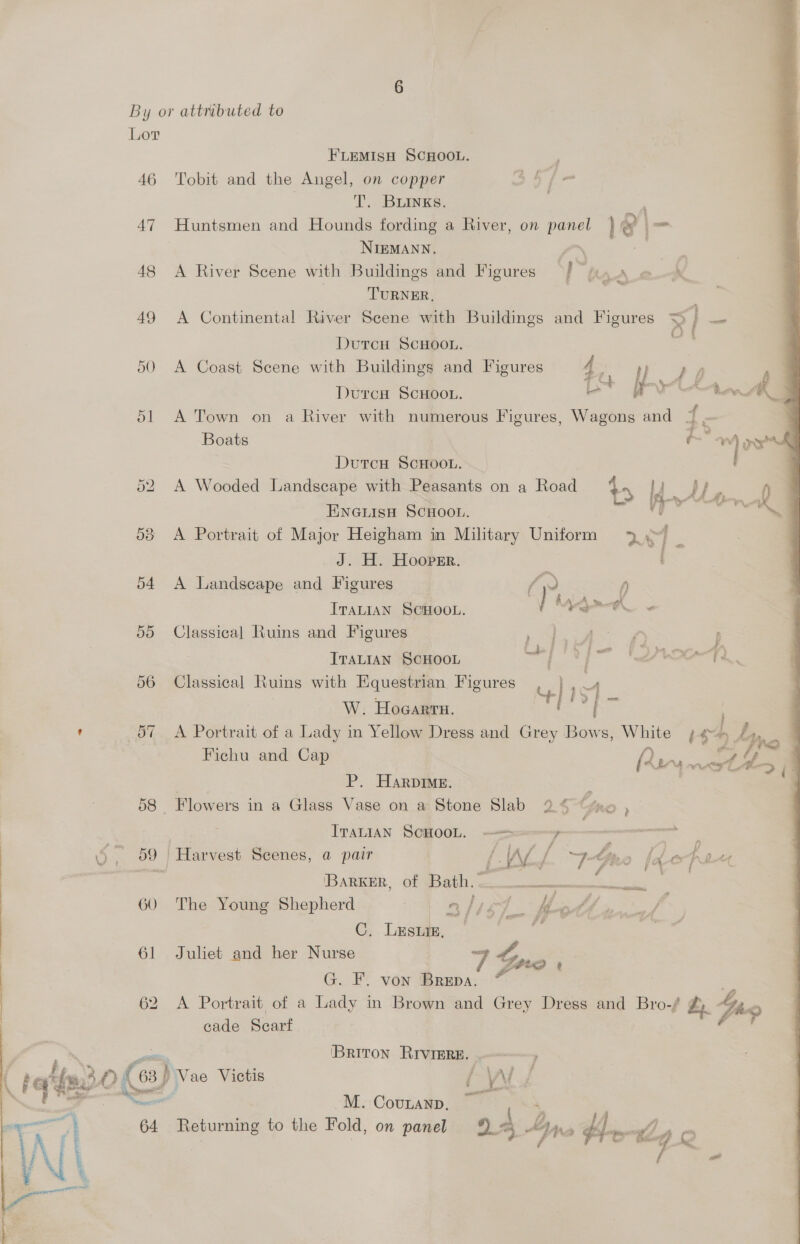 6
By or attributed to
Lot
FLEMISH SCHOOL.
46 Tobit and the Angel, on copper
T. BLINKS.
47 Huntsmen and Hounds fording a River, on panel
NIEMANN.
48 A River Scene with Buildings and Figures
TURNER.
49 A Continental River Scene with Buildings and Figures
DUTCH SCHOOL.
50 A Coast Scene with Buildings and Figures
DUTCH SCHOOL.
51 A Town on a River with numerous Figures, Wagons and
Boats
DUTCH SCHOOL.
52 A Wooded Landscape with Peasants on a Road
ENGLISH SCHOOL.
53 A Portrait of Major Heigham in Military Uniform
J. H. HOOPER.
54 A Landscape and Figures
ITALIAN SCHOOL.
55 Classical Ruins and Figures
ITALIAN SCHOOL
56 Classical Ruins with Equestrian Figures
W. HOGARTH.
57 A Portrait of a Lady in Yellow Dress and Grey Bows, White
Fichu and Cap
P. HARDIME.
58 Flowers in a Glass Vase on a Stone Slab
ITALIAN SCHOOL.
59 Harvest Scenes, a pair
BARKER, of Bath.
60 The Young Shepherd
C. LESLIE,
61 Juliet and her Nurse
G. F. VON BREDA.
62 A Portrait of a Lady in Brown and Grey Dress and Bro-
cade Scarf
BRITON RIVIERE.
63 Vae Victis
M. COULAND,
64 Returning to the Fold, on panel